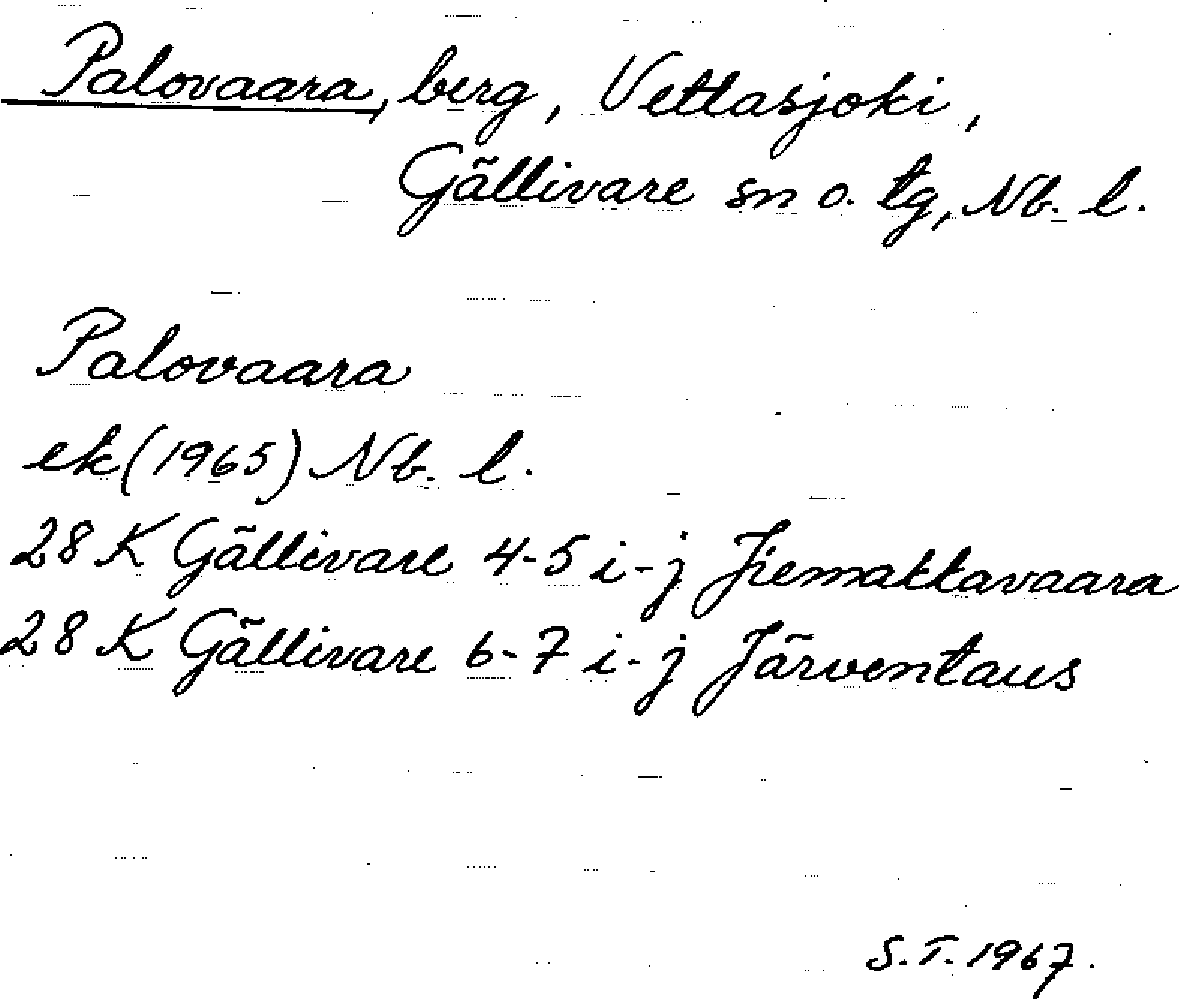 Palovaara, berg, Vettasjoki,
Gällivare sn o. tg, Nb. l.
Palovaara
ek (1965) Nb. l.
28 K Gällivare 4-5 i-j Jiemattavaara
28 K Gällivare 6-7 i-j Järventaus
S.T. 1967.